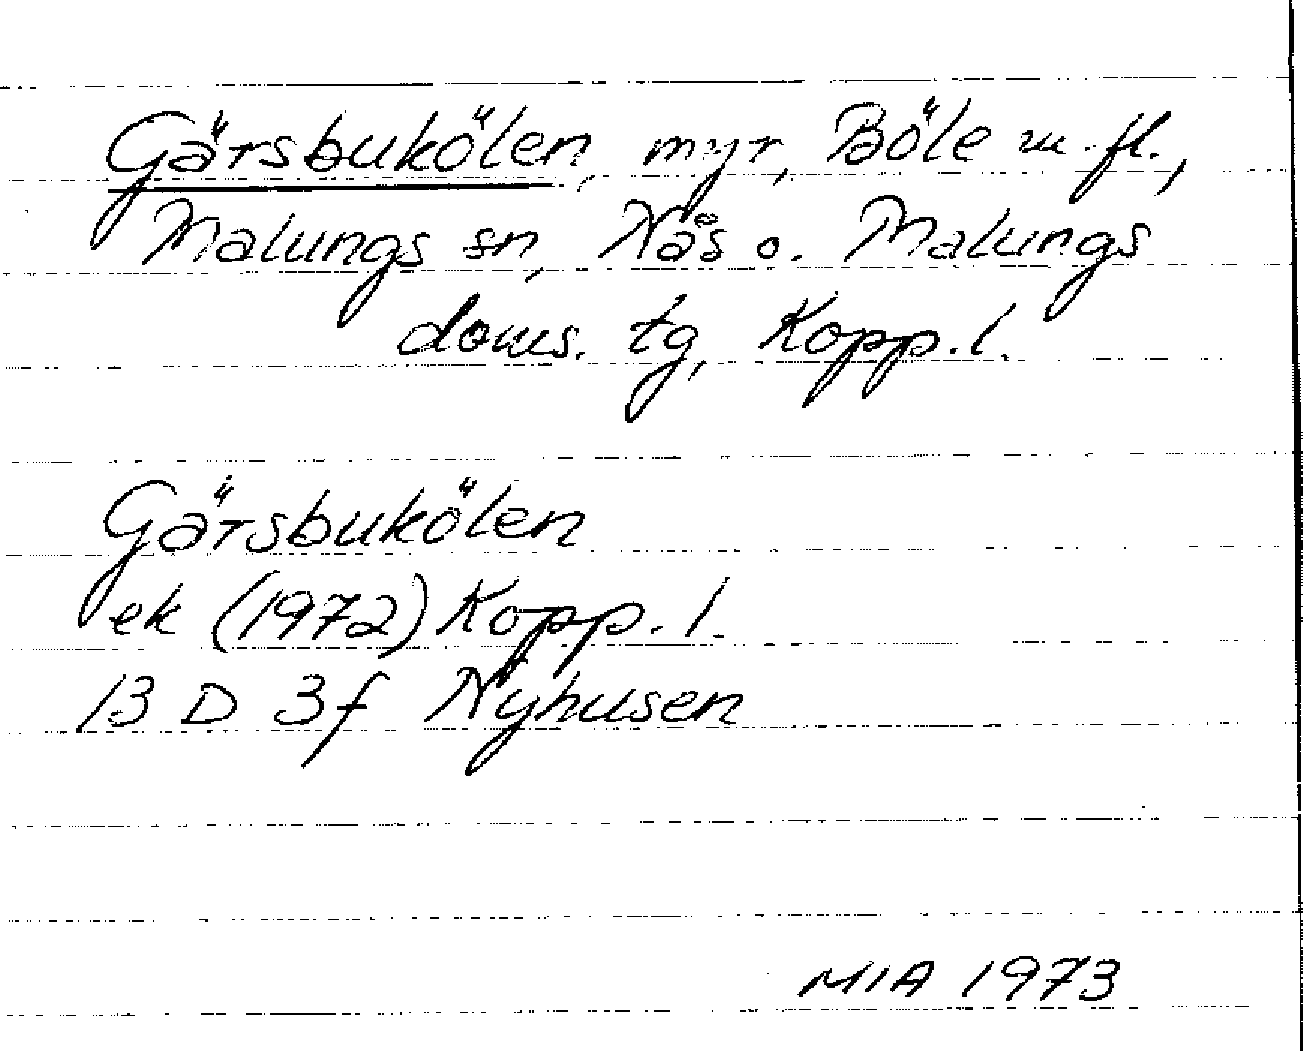 Gärsbukölen, myr, Böle m.fl.,
Malungs sn, Nås o. Malungs
doms. tg, Kopp.l.
Gärsbukölen
ek (1972) Kopp.l.
13 D 3f Nyhusen
MIA 1973